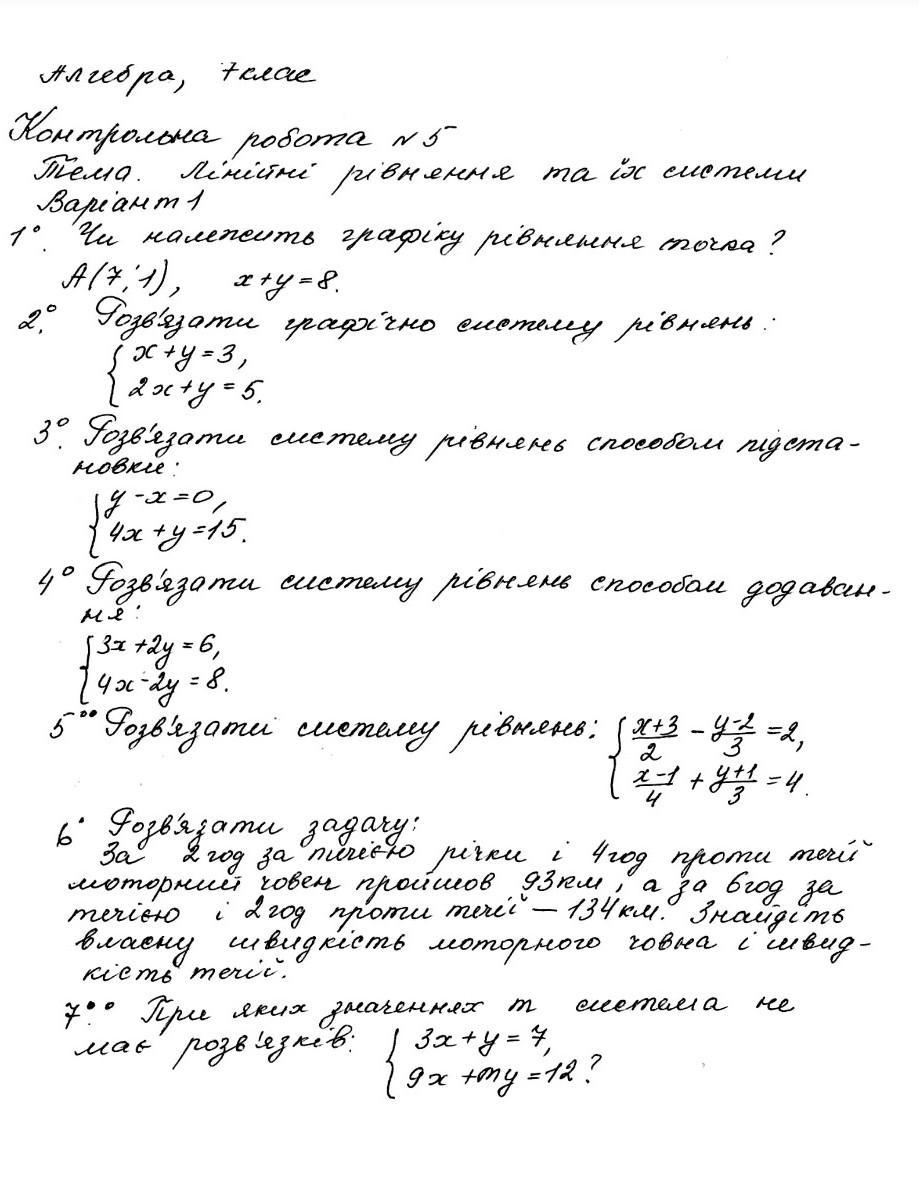 Алгебра, 7 клас
Контрольна робота № 5
Тема. Лінійні рівняння та їх системи
Варіант 1
1°. Чи належить графіку рівняння точка?
А(7; 1), x+y=8.
2°. Розв'язати графічно систему рівнянь:
{ x+y=3,
2x+y=5.
3°. Розв'язати систему рівнянь способом підста-
новки:
{ y-x=0,
4x+y=15.
4° Розв'язати систему рівнянь способом додаван-
ня:
{ 3x+2y=6,
4x-2y=8.
5°° Розв'язати систему рівнянь: { (x+3)/2 - (y-2)/3 = 2,
(x-1)/4 + (y+1)/3 = 4.
6° Розв'язати задачу:
За 2 год за течією річки і 4 год проти течії
моторний човен пройшов 93 км, а за 6 год за
течією і 2 год проти течії — 134 км. Знайдіть
власну швидкість моторного човна і швид-
кість течії.
7°° При яких значеннях m система не
має розв'язків: { 3x+y=7,
9x+my=12?